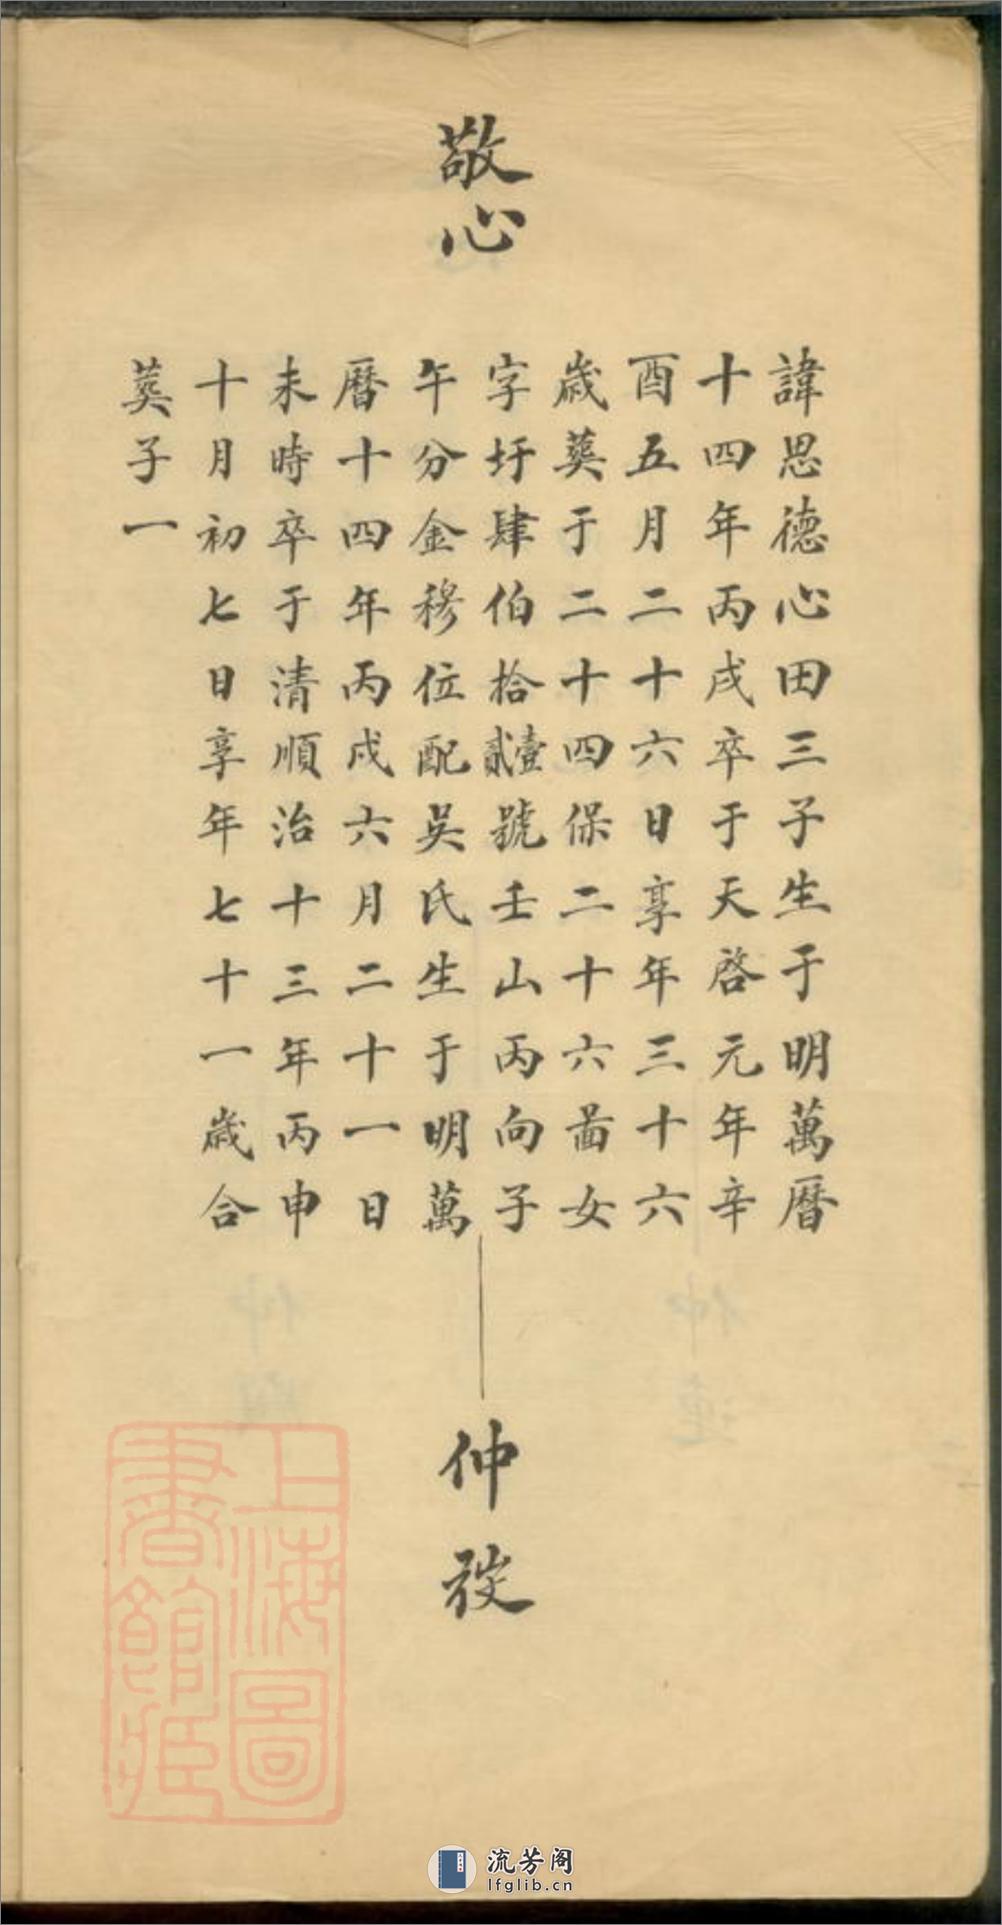 敬心
諱思德心田三子生于明萬曆
十四年丙戌卒于天啓元年辛
酉五月二十六日享年三十六
歲葬于二十四保二十六啚女
字圩肆伯拾壹貳號壬山丙向子
午分金穆位配吳氏生于明萬
曆十四年丙戌六月二十一日
未時卒于清順治十三年丙申
十月初七日享年七十一歲合
葬子一
仲
上海圖
書館藏
流芳阁
lfglib.cn